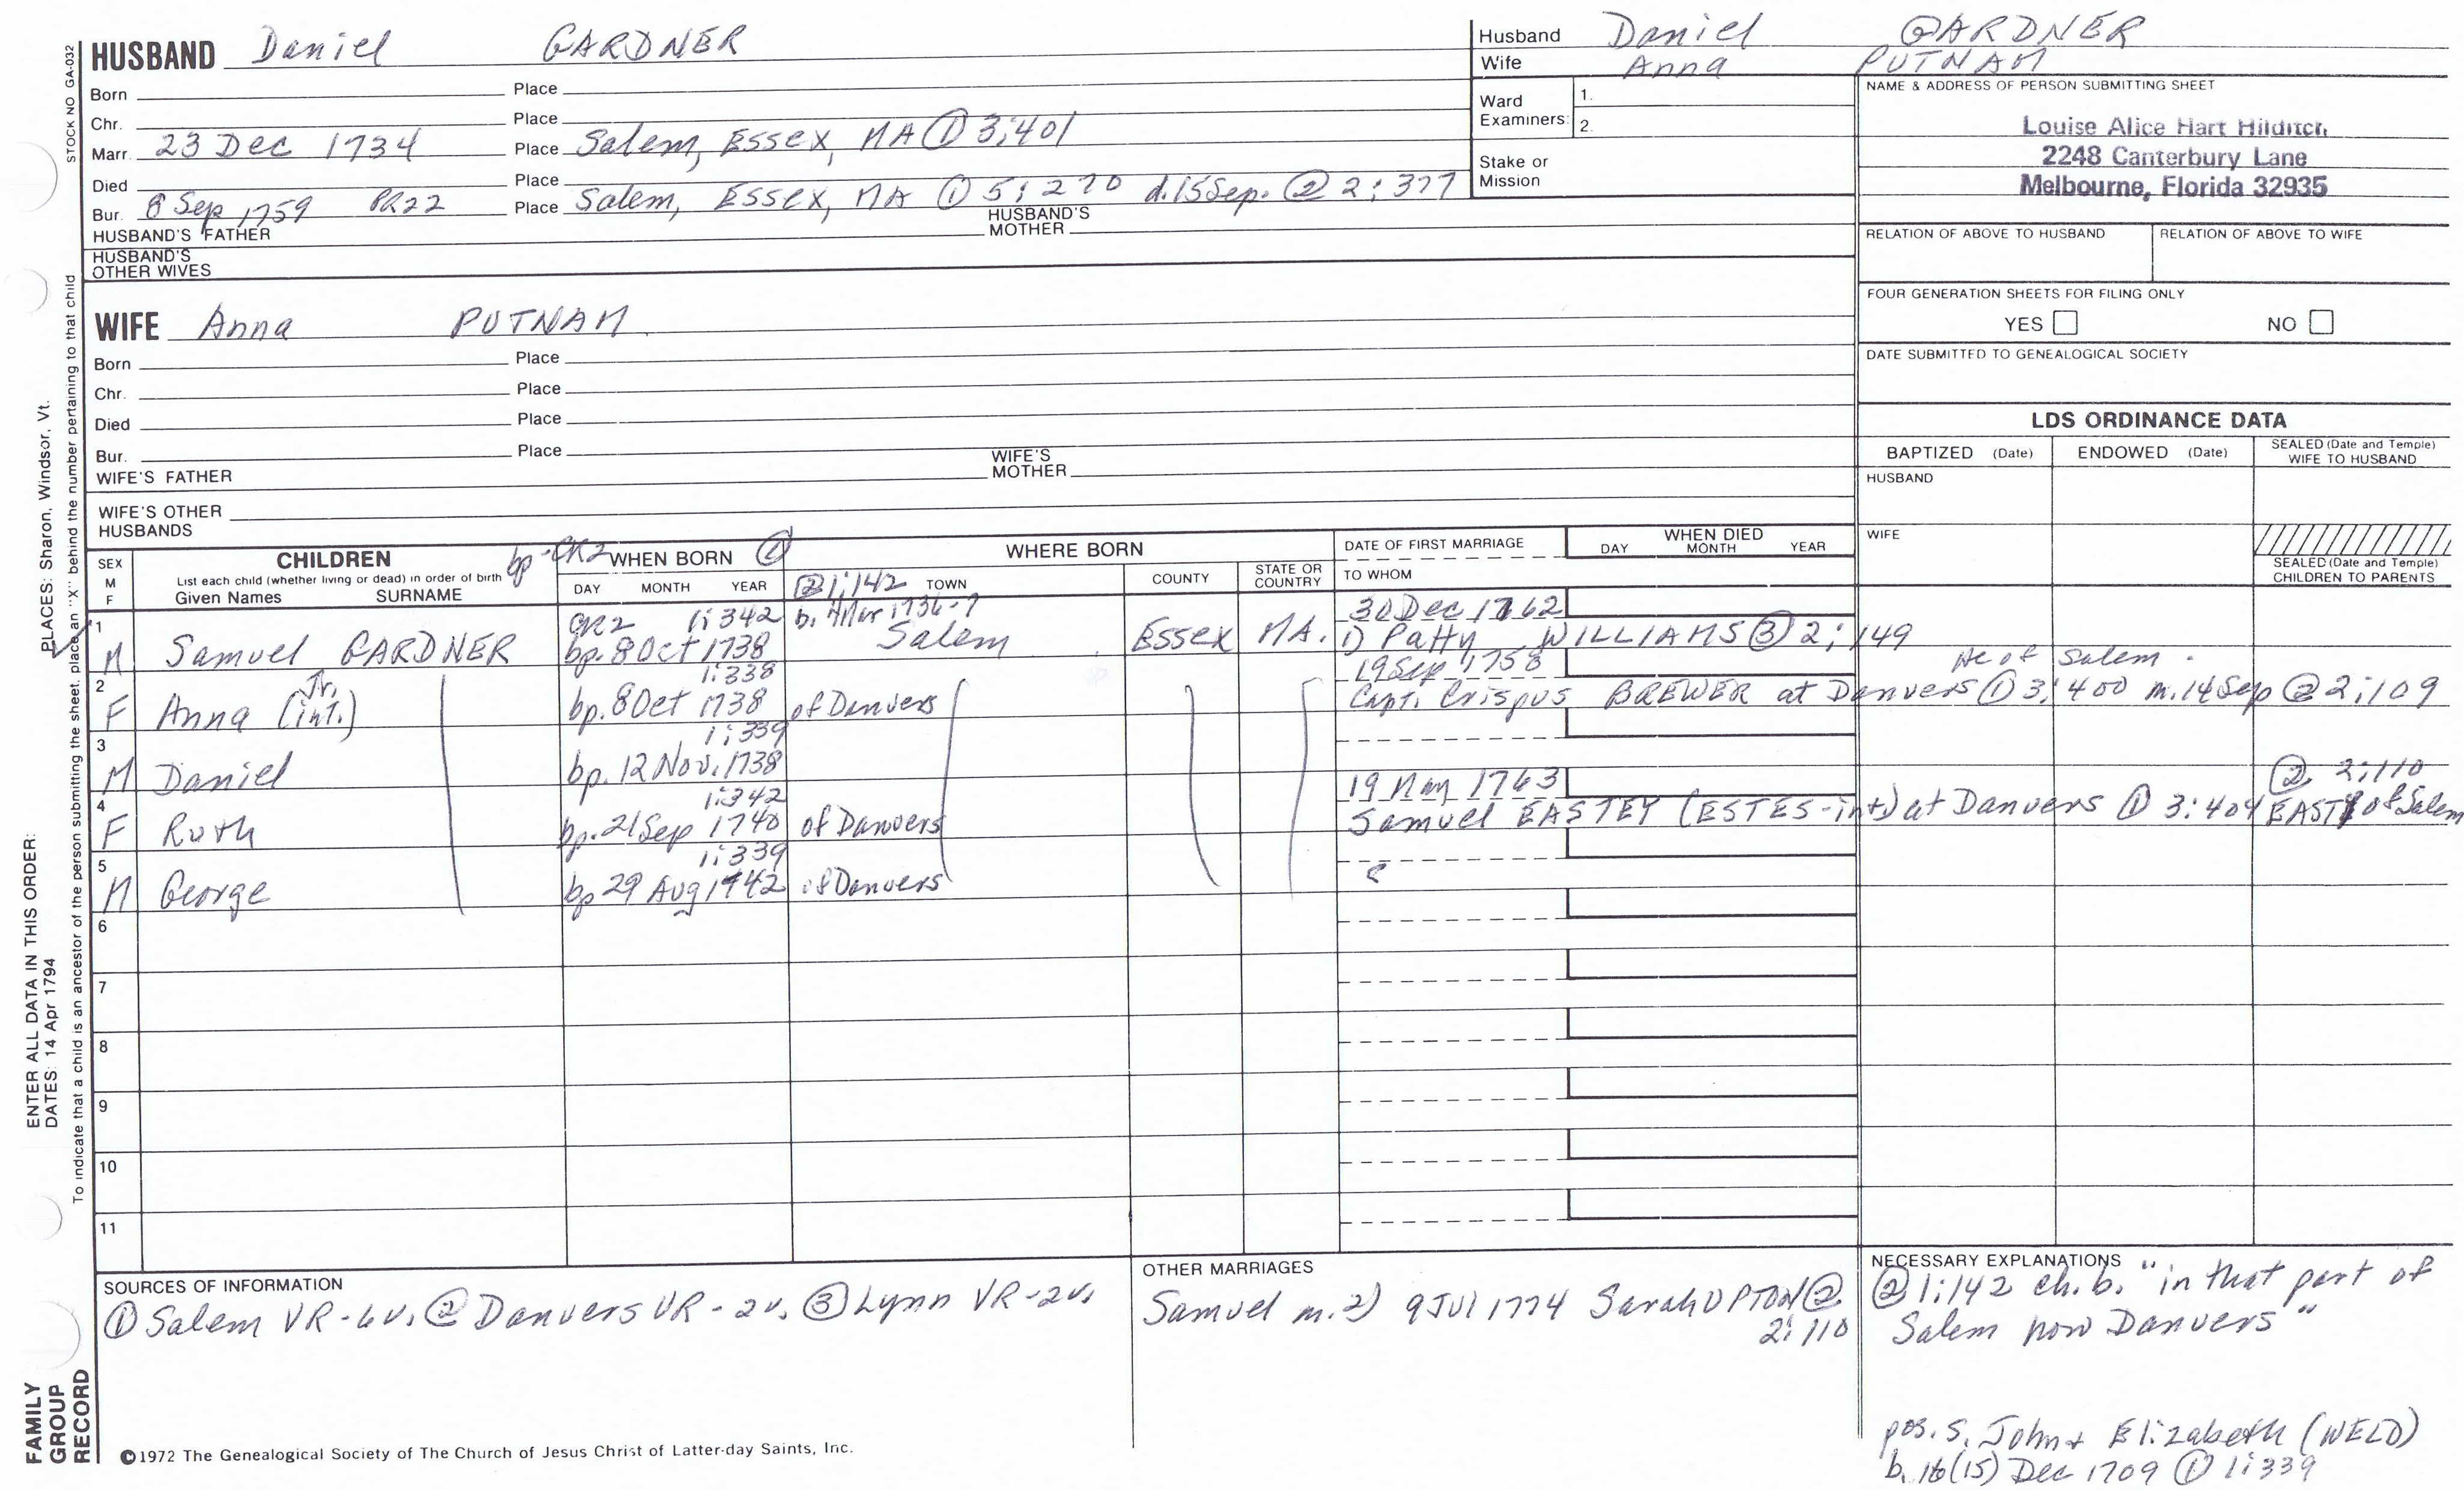 HUSBAND Daniel GARDNER
Born Place
Chr. Place
Marr. 23 Dec 1734 Place Salem, Essex, MA ① 3:401
Died Place
Bur. 8 Sep 1759 PR22 Place Salem, Essex, MA ① 5:270 d.15Sep. ② 2:377
HUSBAND'S FATHER HUSBAND'S MOTHER
HUSBAND'S OTHER WIVES
Husband Daniel GARDNER
Wife Anna PUTNAM
Ward Examiners: 1.
2.
Stake or Mission
NAME & ADDRESS OF PERSON SUBMITTING SHEET
Louise Alice Hart Hilditch
2248 Canterbury Lane
Melbourne, Florida 32935
RELATION OF ABOVE TO HUSBAND RELATION OF ABOVE TO WIFE
FOUR GENERATION SHEETS FOR FILING ONLY
YES NO
DATE SUBMITTED TO GENEALOGICAL SOCIETY
WIFE Anna PUTNAM
Born Place
Chr. Place
Died Place
Bur. Place
WIFE'S FATHER WIFE'S MOTHER
WIFE'S OTHER HUSBANDS
LDS ORDINANCE DATA
BAPTIZED (Date) ENDOWED (Date) SEALED (Date and Temple) WIFE TO HUSBAND
HUSBAND
WIFE
SEALED (Date and Temple) CHILDREN TO PARENTS
SEX M F
CHILDREN
List each child (whether living or dead) in order of birth
Given Names SURNAME
bp-CR2 WHEN BORN ①
DAY MONTH YEAR
WHERE BORN
② 1:142 TOWN COUNTY STATE OR COUNTRY
DATE OF FIRST MARRIAGE
TO WHOM
WHEN DIED
DAY MONTH YEAR
1 CR2 1:342 b. 4Mar 1736-7 30 Dec 1762
M Samuel GARDNER bp. 8 Oct 1738 Salem Essex MA. 1) Patty WILLIAMS ③ 2:149
2 Jr. 1:338 19 Sep 1758 He of Salem.
F Anna (int.) bp. 8 Oct 1738 of Danvers Capt. Crispus BREWER at Danvers ① 3:400 m. 14 Sep ② 2:109
3 1:339
M Daniel bp. 12 Nov. 1738
4 1:342 19 May 1763 ② 2:110
F Ruth bp. 21 Sep 1740 of Danvers Samuel EASTEY (ESTES-int) at Danvers ① 3:404 EASTY of Salem
5 1:339
M George bp 29 Aug 1742 of Danvers
6
7
8
9
10
11
SOURCES OF INFORMATION
① Salem VR-6v. ② Danvers VR-2v. ③ Lynn VR-2v.
OTHER MARRIAGES
Samuel m. 2) 9 Jul 1774 Sarah UPTON ②
2:110
NECESSARY EXPLANATIONS
② 1:142 ch. b. "in that part of
Salem now Danvers"
pos. s. John + Elizabeth (WELD)
b. 16(15) Dec 1709 ① 1:339
©1972 The Genealogical Society of The Church of Jesus Christ of Latter-day Saints, Inc.
STOCK NO GA-032
PLACES: Sharon, Windsor, Vt.
To indicate that a child is an ancestor of the person submitting the sheet, place an "X" behind the number pertaining to that child
ENTER ALL DATA IN THIS ORDER:
DATES: 14 Apr 1794
FAMILY
GROUP
RECORD